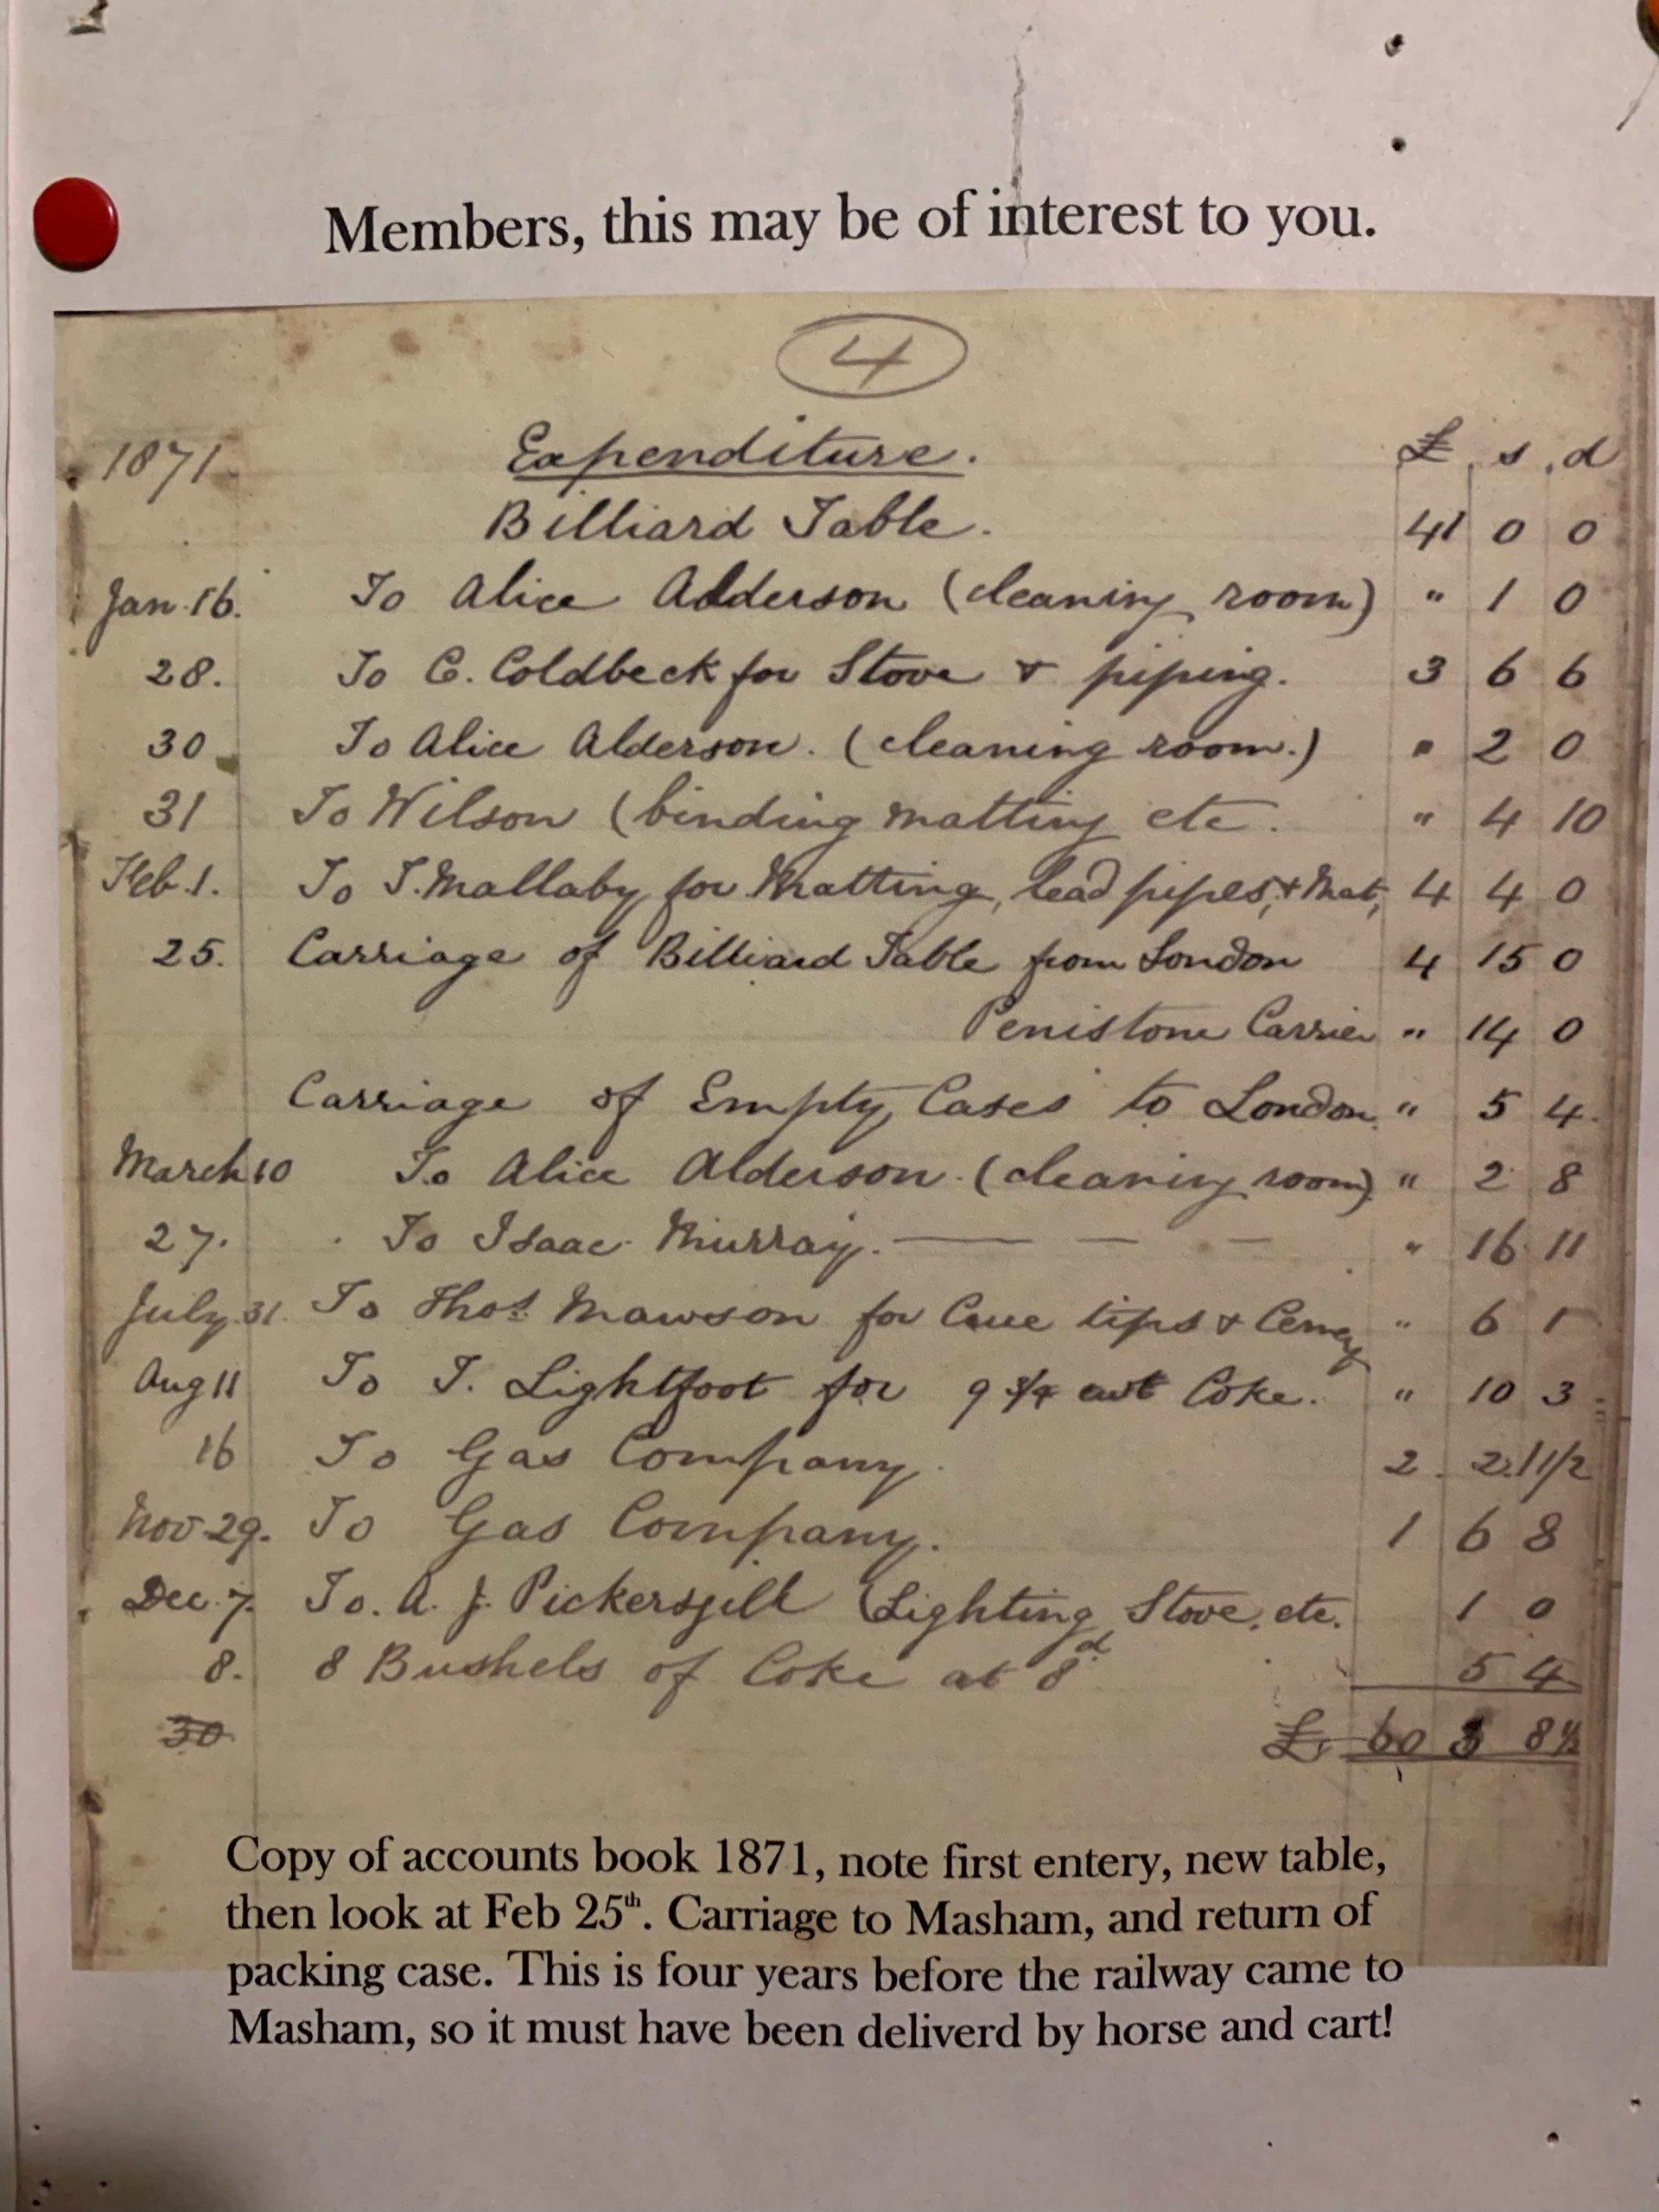 Members, this may be of interest to you.
4
1871. Expenditure. £ s d
Billiard Table. 41 0 0
Jan. 16. To Alice Alderson (cleaning room) " 1 0
28. To C. Coldbeck for Stove & piping. 3 6 6
30 To Alice Alderson. (cleaning room.) " 2 0
31 To Wilson (binding matting etc. " 4 10
Feb. 1. To T. Mallaby for Matting, lead pipes, & Mat, 4 4 0
25. Carriage of Billiard Table from London 4 15 0
Penistone Carrier " 14 0
Carriage of Empty Cases to London. " 5 4.
March 10 To Alice Alderson. (cleaning room) " 2 8
27. To Isaac Murray. — — — " 16 11
July 31. To Thos. Mawson for Cue tips & " 6 1
Aug 11 To T. Lightfoot for 9 3/4 cwt Coke. " 10 3
16 To Gas Company. 2 2. 1 1/2
Nov 29. To Gas Company. 1 6 8
Dec. 7. To. A. J. Pickersgill (Lighting Stove, etc. 1 0
8. 8 Bushels of Coke at 8d. 5 4
30 £. 60 3 8 1/2
Copy of accounts book 1871, note first entery, new table,
then look at Feb 25th. Carriage to Masham, and return of
packing case. This is four years before the railway came to
Masham, so it must have been deliverd by horse and cart!